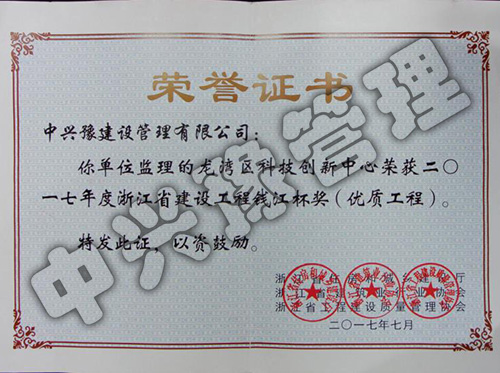 荣誉证书
中兴豫建设管理有限公司：
你单位监理的龙湾区科技创新中心荣获二〇
一七年度浙江省建设工程钱江杯奖（优质工程）。
特发此证，以资鼓励。
浙江省工程建设质量管理协会
二〇一七年七月
中兴豫管理